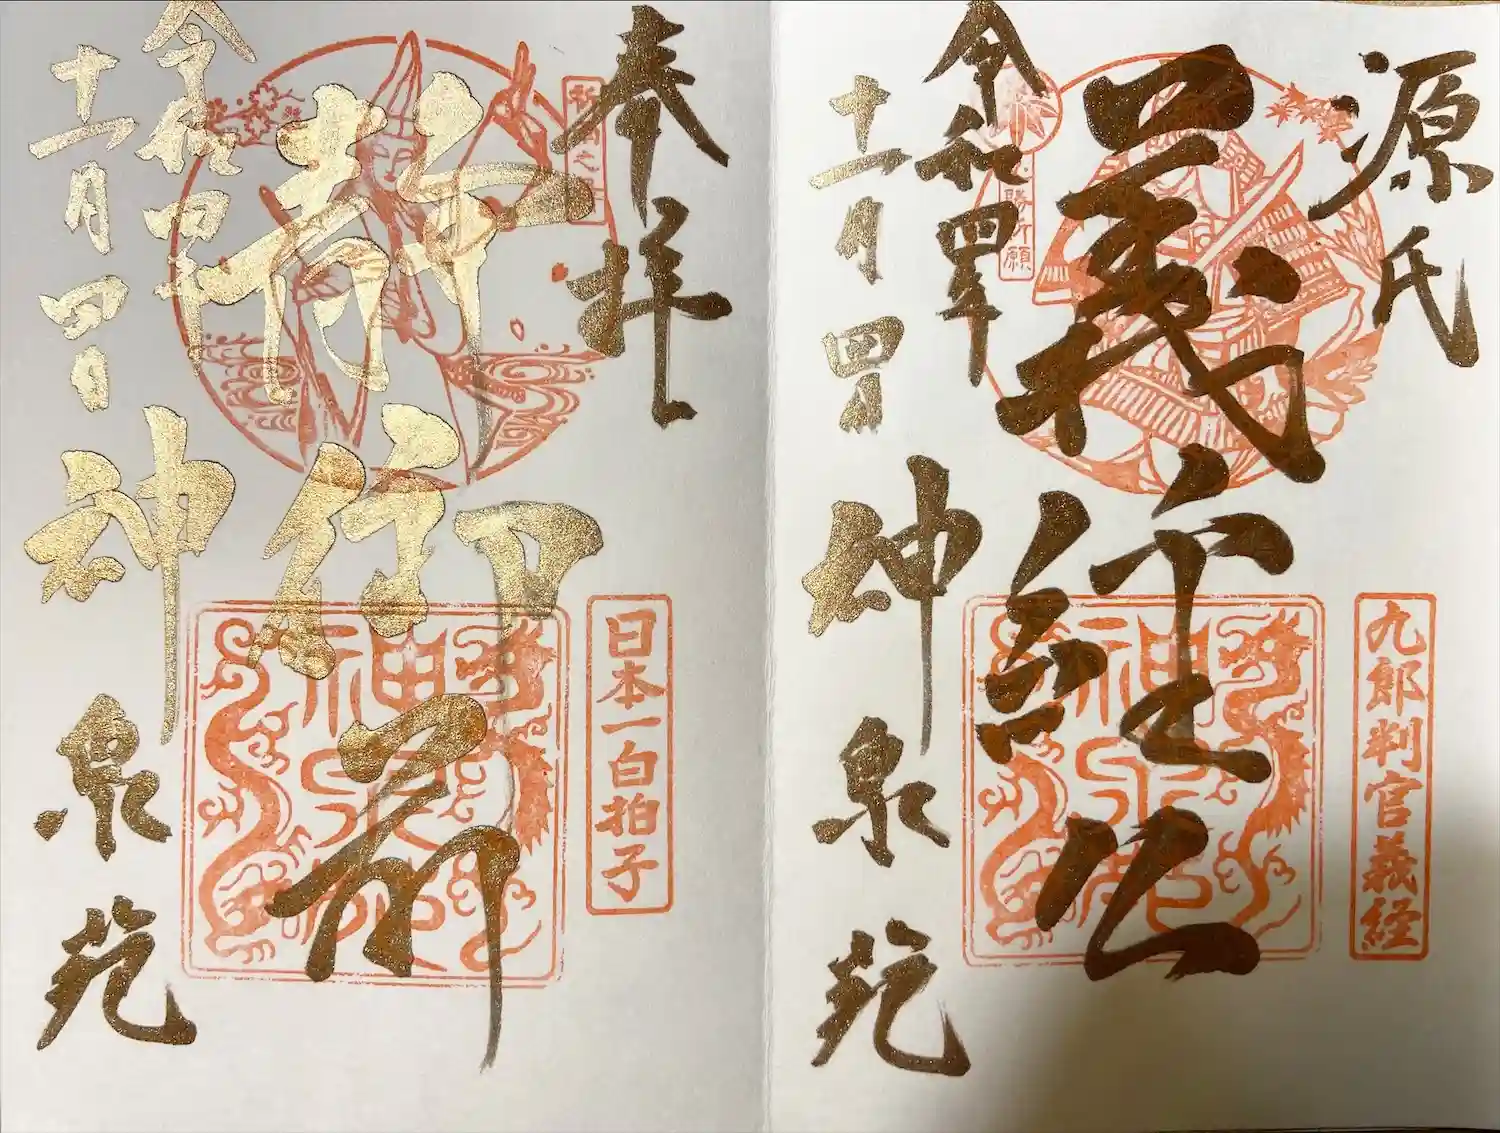 源氏
義経公
令和四年
十二月四日
神泉苑
必勝祈願
九郎判官義経
神泉苑
奉拝
静御前
令和四年
十二月四日
神泉苑
日本一白拍子
神泉苑